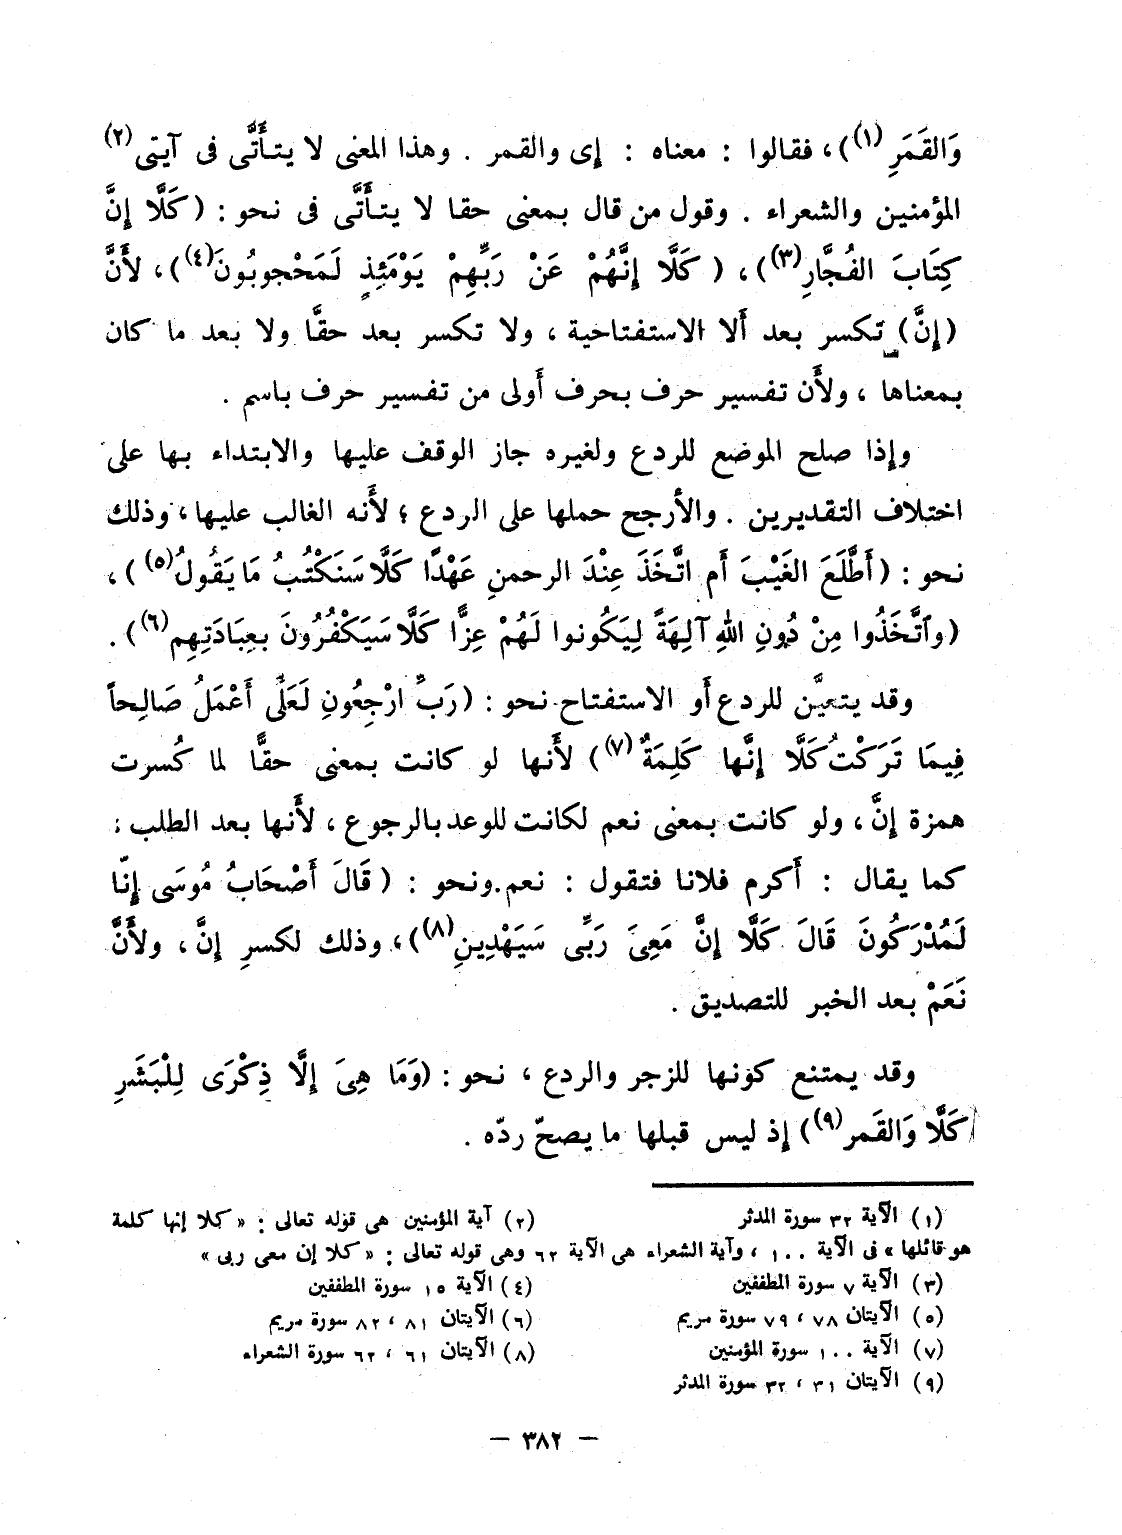 وَالقَمَرِ(١))، فقالوا : معناه : إى والقمر . وهذا المعنى لا يتأَتَّى فى آيتى(٢)
المؤمنين والشعراء . وقول من قال بمعنى حقا لا يتأَتَّى فى نحو : (كَلَّا إِنَّ
كِتَابَ الفُجَّارِ(٣))، ( كَلَّا إِنَّهُمْ عَنْ رَبِّهِمْ يَوْمَئِذٍ لَمَحْجوبُونَ(٤))، لأَنَّ
(إِنَّ) تكسر بعد أَلا الاستفتاحية ، ولا تكسر بعد حقَّا ولا بعد ما كان
بمعناها ، ولأَن تفسير حرف بحرف أَولى من تفسير حرف باسم .
وإِذا صلح الموضع للردع ولغيره جاز الوقف عليها والابتداء بها على
اختلاف التقديرين . والأرجح حملها على الردع ؛ لأَنه الغالب عليها ، وذلك
نحو : (أَطَّلَعَ الغَيْبَ أَم اتَّخَذَ عِنْدَ الرحمنِ عَهْدًا كَلَّا سَنَكْتُبُ مَا يَقُولُ(٥) ) ،
(وٱتَّخَذُوا مِنْ دُونِ اللهِ آلِهَةً لِيَكُونوا لَهُمْ عِزًّا كَلَّا سَيَكْفُرُونَ بعِبَادَتِهِم(٦)) .
وقد يتعيَّن للردع أَو الاستفتاح نحو : (رَبِّ ارْجِعُونِ لَعَلِّى أَعْمَلُ صَالِحاً
فِيمَا تَرَكْتُ كَلَّا إِنَّها كَلِمَةٌ(٧)) لأَنها لو كانت بمعنى حقَّا لما كُسرت
همزة إِنَّ ، ولو كانت بمعنى نعم لكانت للوعد بالرجوع ، لأَنها بعد الطلب ؛
كما يقال : أَكرم فلانا فتقول : نعم . ونحو : ( قَالَ أَصْحَابُ مُوسَى إِنّا
لَمُدْرَكُونَ قَالَ كَلَّا إِنَّ مَعِىَ رَبِّى سَيَهْدِينِ(٨))، وذلك لكسرِ إِنَّ ، ولأَنَّ
نَعَمْ بعد الخبر للتصديق .
وقد يمتنع كونها للزجر والردع ، نحو : (وَمَا هِىَ إِلَّا ذِكْرَى لِلْبَشَرِ
كَلَّا وَالقَمر(٩)) إِذ ليس قبلها ما يصحّ ردّه .
(١) الآية ٣٢ سورة المدثر (٢) آية المؤمنين هى قوله تعالى : « كلا إنها كلمة
هو قائلها » فى الآية ١٠٠ ، وآية الشعراء هى الآية ٦٢ وهى قوله تعالى : « كلا إن معى ربى »
(٣) الآية ٧ سورة المطففين (٤) الآية ١٥ سورة المطففين
(٥) الآيتان ٧٨ ، ٧٩ سورة مريم (٦) الآيتان ٨١ ، ٨٢ سورة مريم
(٧) الآية ١٠٠ سورة المؤمنين (٨) الآيتان ٦١ ، ٦٢ سورة الشعراء
(٩) الآيتان ٣١ ، ٣٢ سورة المدثر
— ٣٨٢ —